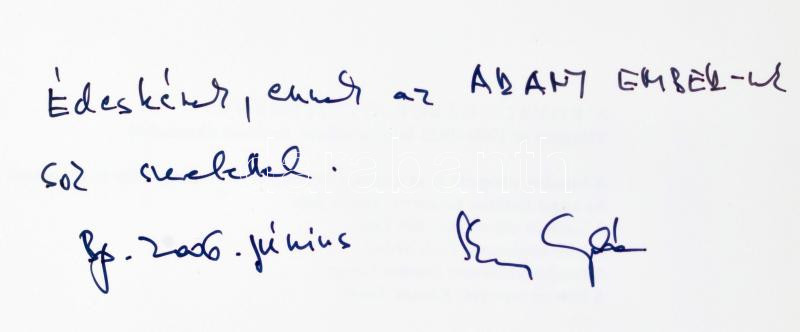 Édeskének, ennek az ARANY EMBER-nek
sok szeretettel.
Bp. 2006. június